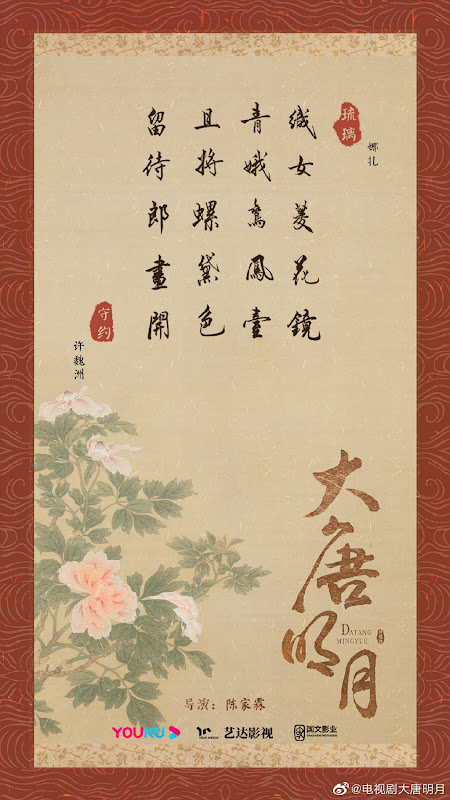 琉璃
娜扎
織女菱花鏡
青娥鸞鳳臺
且將螺黛色
留待郎畫開
守约
许魏洲
大唐明月
DATANG
MINGYUE
导演：陈家霖
YOUKU 艺达影视 国文影业
@电视剧大唐明月